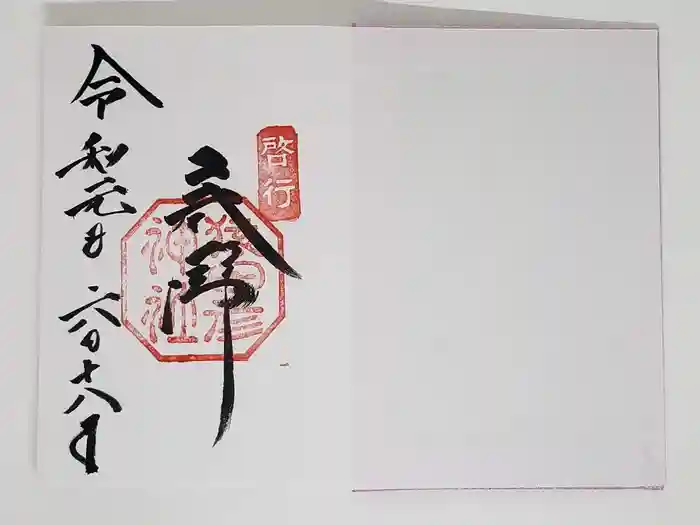 啓行
奉拝
猿田彦
神社
令和元年六月十八日